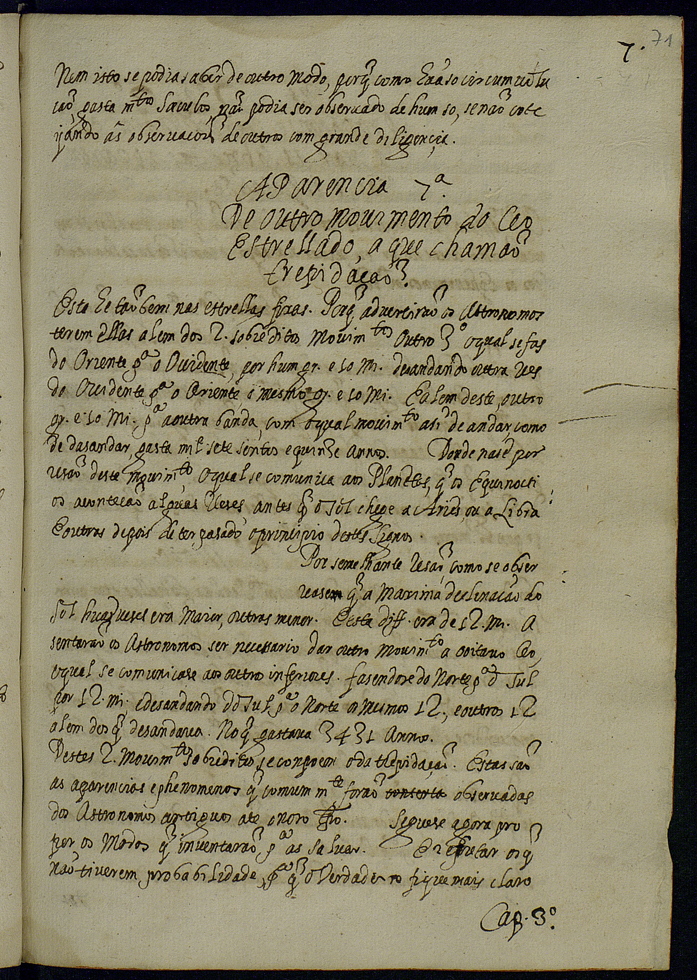 7. 71
Nem isto se podia saber de outro modo, porq̃ como Essa so circumvolu
caõ gasta m.tos Saculos naõ podia ser observado de hum so, senaõ cote
jando as observacoẽs de outros com grande diligencia.
Aparencia 7.a
De outro movimento do Ceo
Estrellado, a que chamaõ
trepidaçaõ.
Esta he taõbem nas estrellas fixas. Porq̃ advertiraõ os Astronomos
terem Ellas alem dos 2. sobreditos movim.tos outro 3.o o qual se fas
do Oriente p.a o Occidente, por hum gr. e 10 Mi. desandando outra ves
do Occidente p.a o Oriente o mesmo gr. e 10 Mi. E alem deste, outro
gr. e 10 Mi. p.a a outra banda, com o qual movim.to asi de andar como
de desandar, gasta mil sete sentos e quinze Annos. Donde nase por
resaõ deste movim.to o qual se comunica aos Planetas, q̃ os Equinocti
os aconteçaõ algũas veses antes q̃ o Sol chege a Aries, ou a Libra
E outras depois de ter pasado o principio destes Signos.
Por semelhante resaõ como se obser
vasem q̃ a Maxima declinacaõ do
Sol huãs veses era Maior, outras menor. E esta diff. era de 12. Mi. A
sentaraõ os Astronomos ser necessario dar outro movim.to a o oitavo Ceo
o qual se comunicase aos outro inferiores. fasendose do Norte p.a o Sul
por 12 mi. e desandando do Sul p.a o Norte os mesmos 12, e outros 12
alem dos q̃ desandava. No q̃ gastava 3431 Annos.
Destes 2. Movim.tos sobreditos se conpoem o da trepidaçaõ. Estas saõ
as aparencias e phenomenos q̃ comum m.te foraõ observadas
dos Astronomos antiguos ate o noso tpõ. Seguese agora pro
por os Modos q̃ inventaraõ p.a as salvar. E refutar os q̃
naõ tiverem, probabilidade, p.a q̃ o Verdadeiro fique mais claro
Cap. 3.o